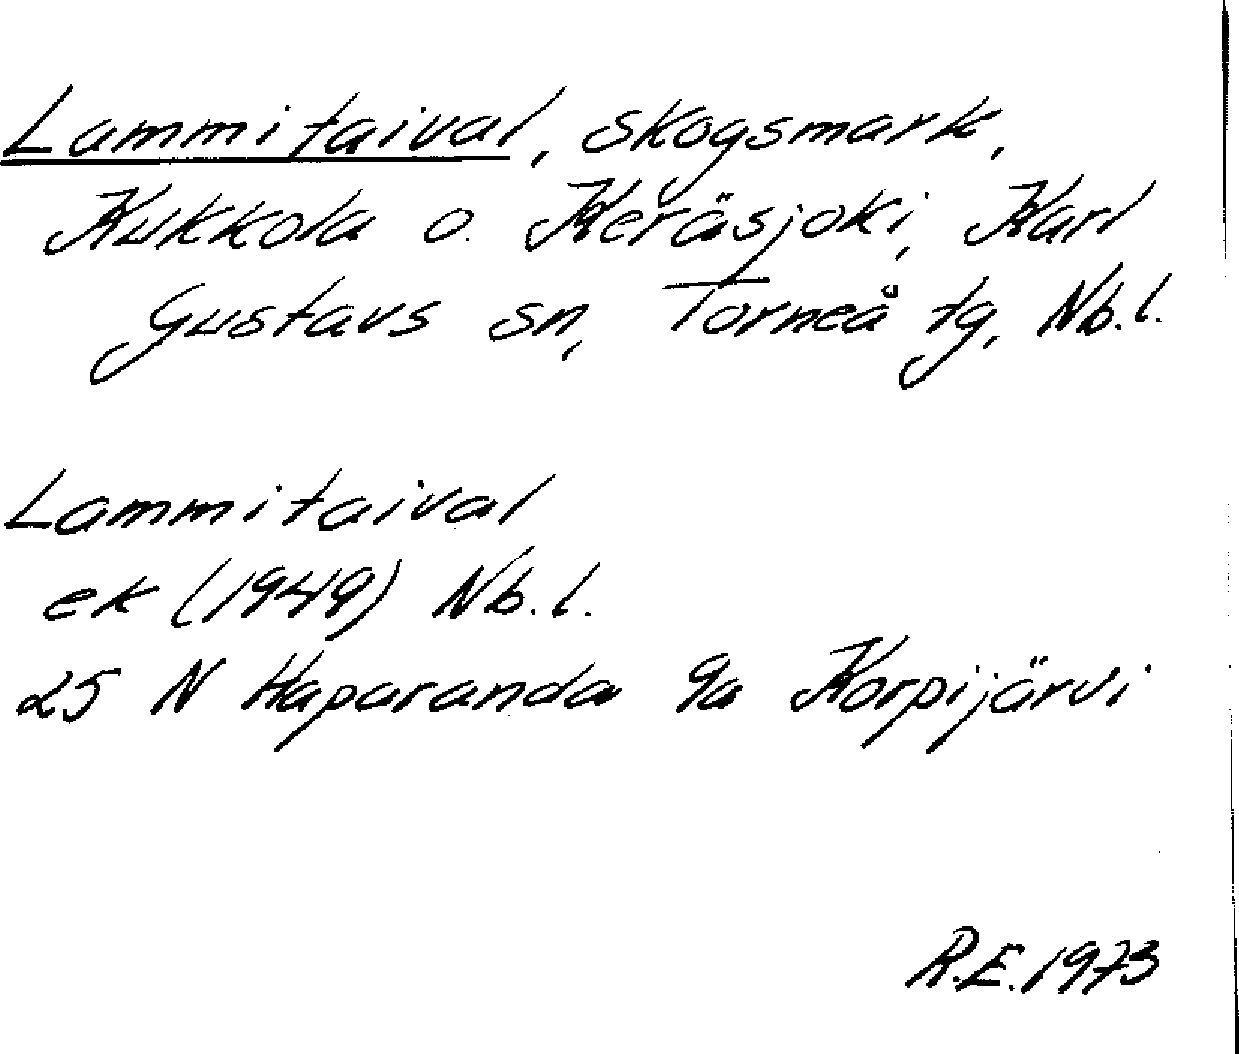 Lammitaival, skogsmark,
Kukkola o. Keräsjoki, Karl
Gustavs sn, Torneå tg, Nb.l.
Lammitaival
ek (1949) Nb.l.
25 N Haparanda 9a Korpijärvi
R.E.1973